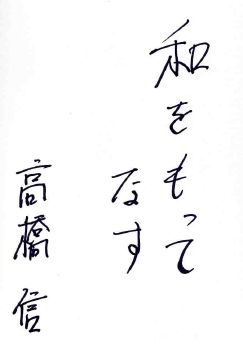 和をもって
なす
高橋信